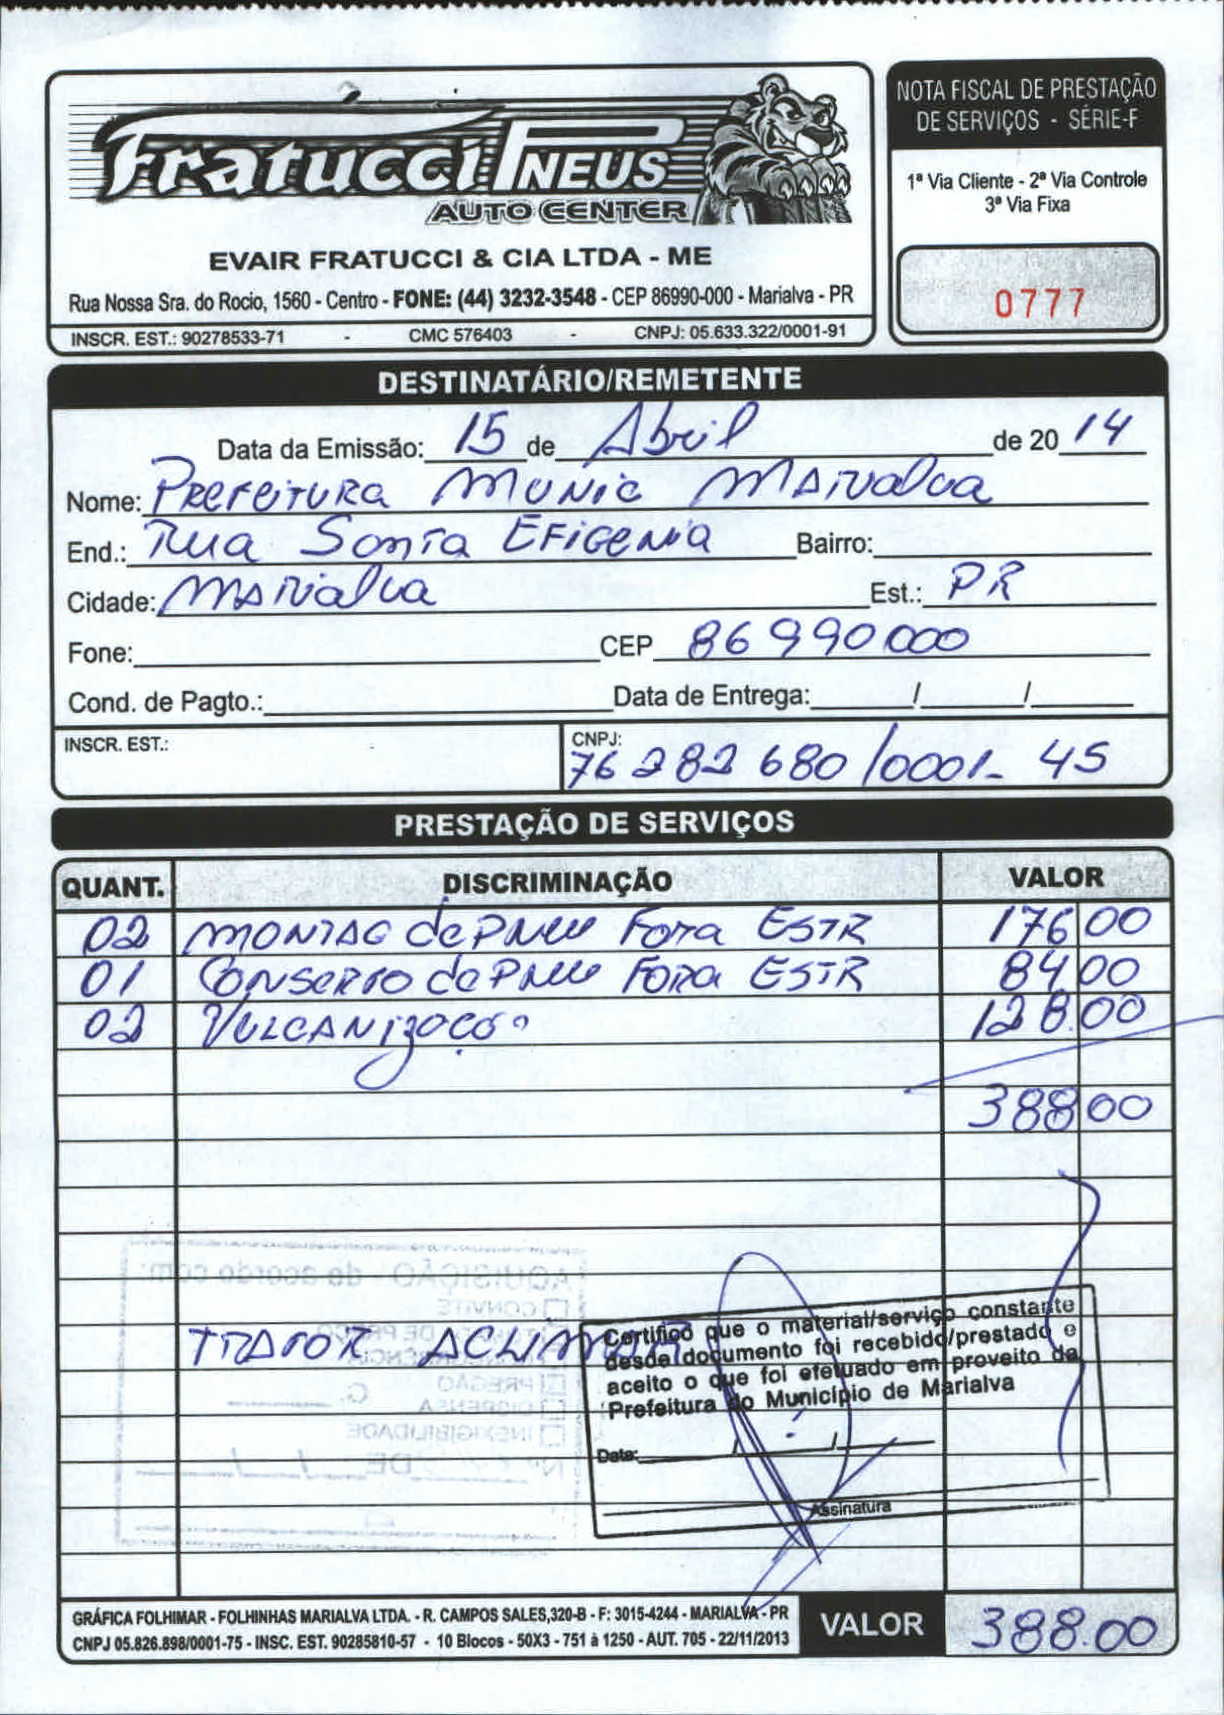 Fratucci PNEUS
AUTO CENTER
EVAIR FRATUCCI & CIA LTDA - ME
Rua Nossa Sra. do Rocio, 1560 - Centro - FONE: (44) 3232-3548 - CEP 86990-000 - Marialva - PR
INSCR. EST.: 90278533-71 - CMC 576403 - CNPJ: 05.633.322/0001-91
NOTA FISCAL DE PRESTAÇÃO
DE SERVIÇOS - SÉRIE-F
1ª Via Cliente - 2ª Via Controle
3ª Via Fixa
0777
DESTINATÁRIO/REMETENTE
Data da Emissão: 15 de Abril de 20 14
Nome: Prefeitura Munic Marialva
End.: Rua Santa Efigenia Bairro:
Cidade: Marialva Est.: PR
Fone: CEP 86990000
Cond. de Pagto.: Data de Entrega: / /
INSCR. EST.: CNPJ: 76 282 680/0001-45
PRESTAÇÃO DE SERVIÇOS
QUANT. DISCRIMINAÇÃO VALOR
02 Montag de Pneu Fora ESTR 176,00
01 Conserto de Pneu Fora ESTR 84,00
02 Vulcanizaçõ 128,00
388,00
AQUISIÇÃO - de acordo com:
CONVITE
PREGÃO
DISPENSA
INEXIGIBILIDADE
Nº DE / /
Certifico que o material/serviço constante
desde documento foi recebido/prestado e
aceito o que foi efetuado em proveito da
Prefeitura do Município de Marialva
Data: / /
Assinatura
GRÁFICA FOLHIMAR - FOLHINHAS MARIALVA LTDA. - R. CAMPOS SALES,320-B - F: 3015-4244 - MARIALVA - PR
CNPJ 05.826.898/0001-75 - INSC. EST. 90285810-57 - 10 Blocos - 50X3 - 751 à 1250 - AUT. 705 - 22/11/2013
VALOR 388.00